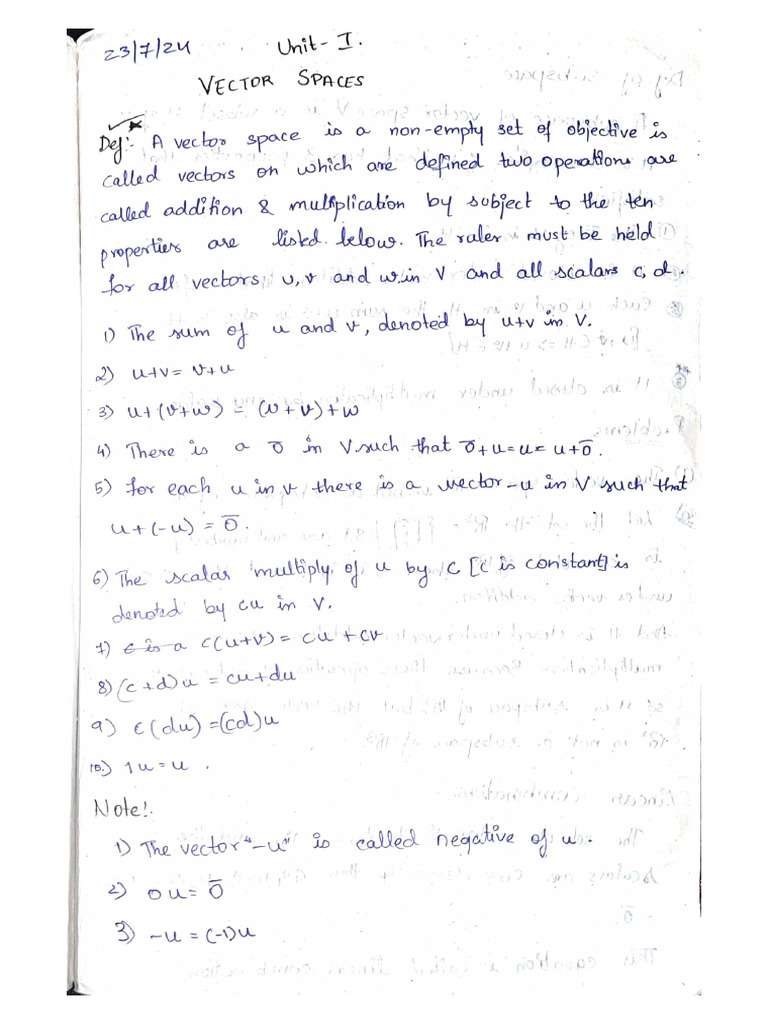 23/7/24 Unit- I.
VECTOR SPACES
Def:- A vector space is a non-empty set of objective is
called vectors on which are defined two operations, are
called addition & multiplication by subject to the ten
properties are listed below. The rules must be held
for all vectors u, v and w in V and all scalars c, d.
1) The sum of u and v, denoted by u+v in V.
2) u+v = v+u
3) u+(v+w) = (u+v)+w
4) There is a 0̅ in V such that 0̅+u=u= u+0̅.
5) for each u in v there is a vector -u in V such that
u+(-u) = 0̅.
6) The scalar multiply of u by c [c is constant] is
denoted by cu in V.
7) c is a c(u+v) = cu + cv
8) (c+d)u = cu+du
9) c(du) = (cd)u
10.) 1u = u .
Note!.
1) The vector "-u" is called negative of u.
2) 0u = 0̅
3) -u = (-1)u